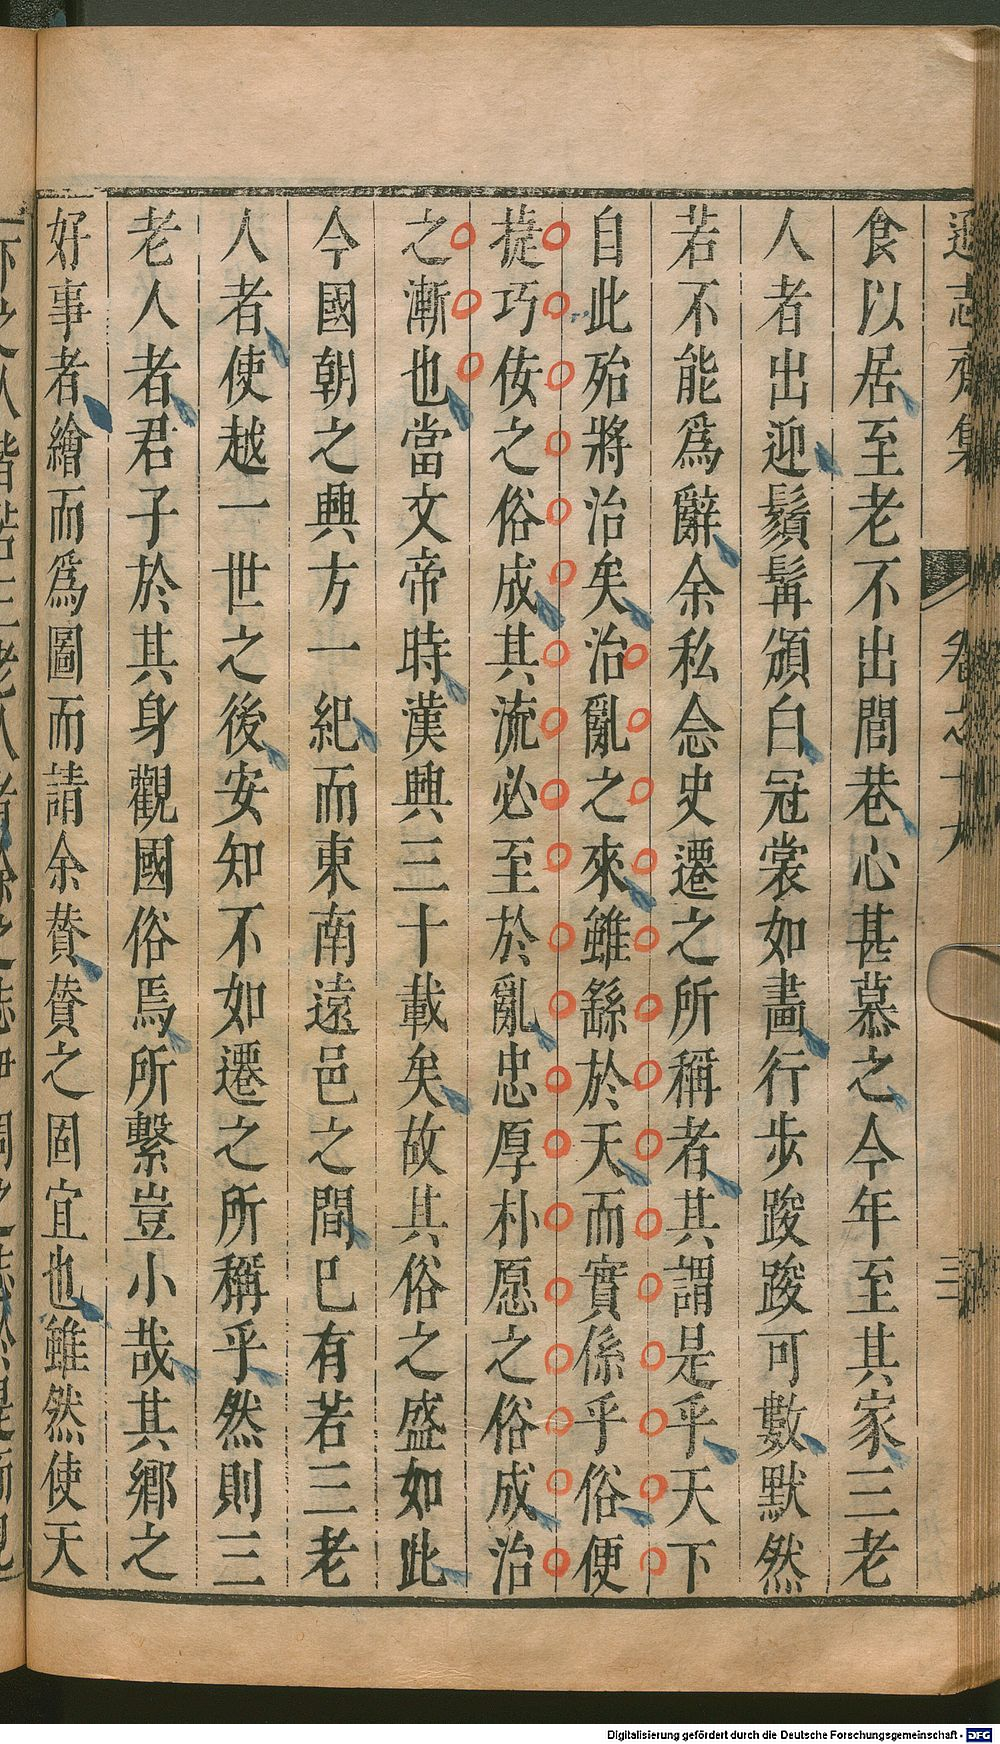 遜志齋集 卷之十九 三
食以居至老不出閭巷心甚慕之今年至其家三老
人者出迎鬚髯頒白冠裳如畵行步踆踆可數默然
若不能爲辭余私念史遷之所稱者其謂是乎天下
自此殆將治矣治亂之來雖繇於天而實係乎俗便
捷巧佞之俗成其流必至於亂忠厚朴愿之俗成治
之漸也當文帝時漢興三十載矣故其俗之盛如此
今國朝之興方一紀而東南遠邑之間已有若三老
人者使越一世之後安知不如遷之所稱乎然則三
老人者君子於其身觀國俗焉所繫豈小哉其鄉之
好事者繪而爲圖而請余贊贊之固宜也雖然使天
Digitalisierung gefördert durch die Deutsche Forschungsgemeinschaft - DFG